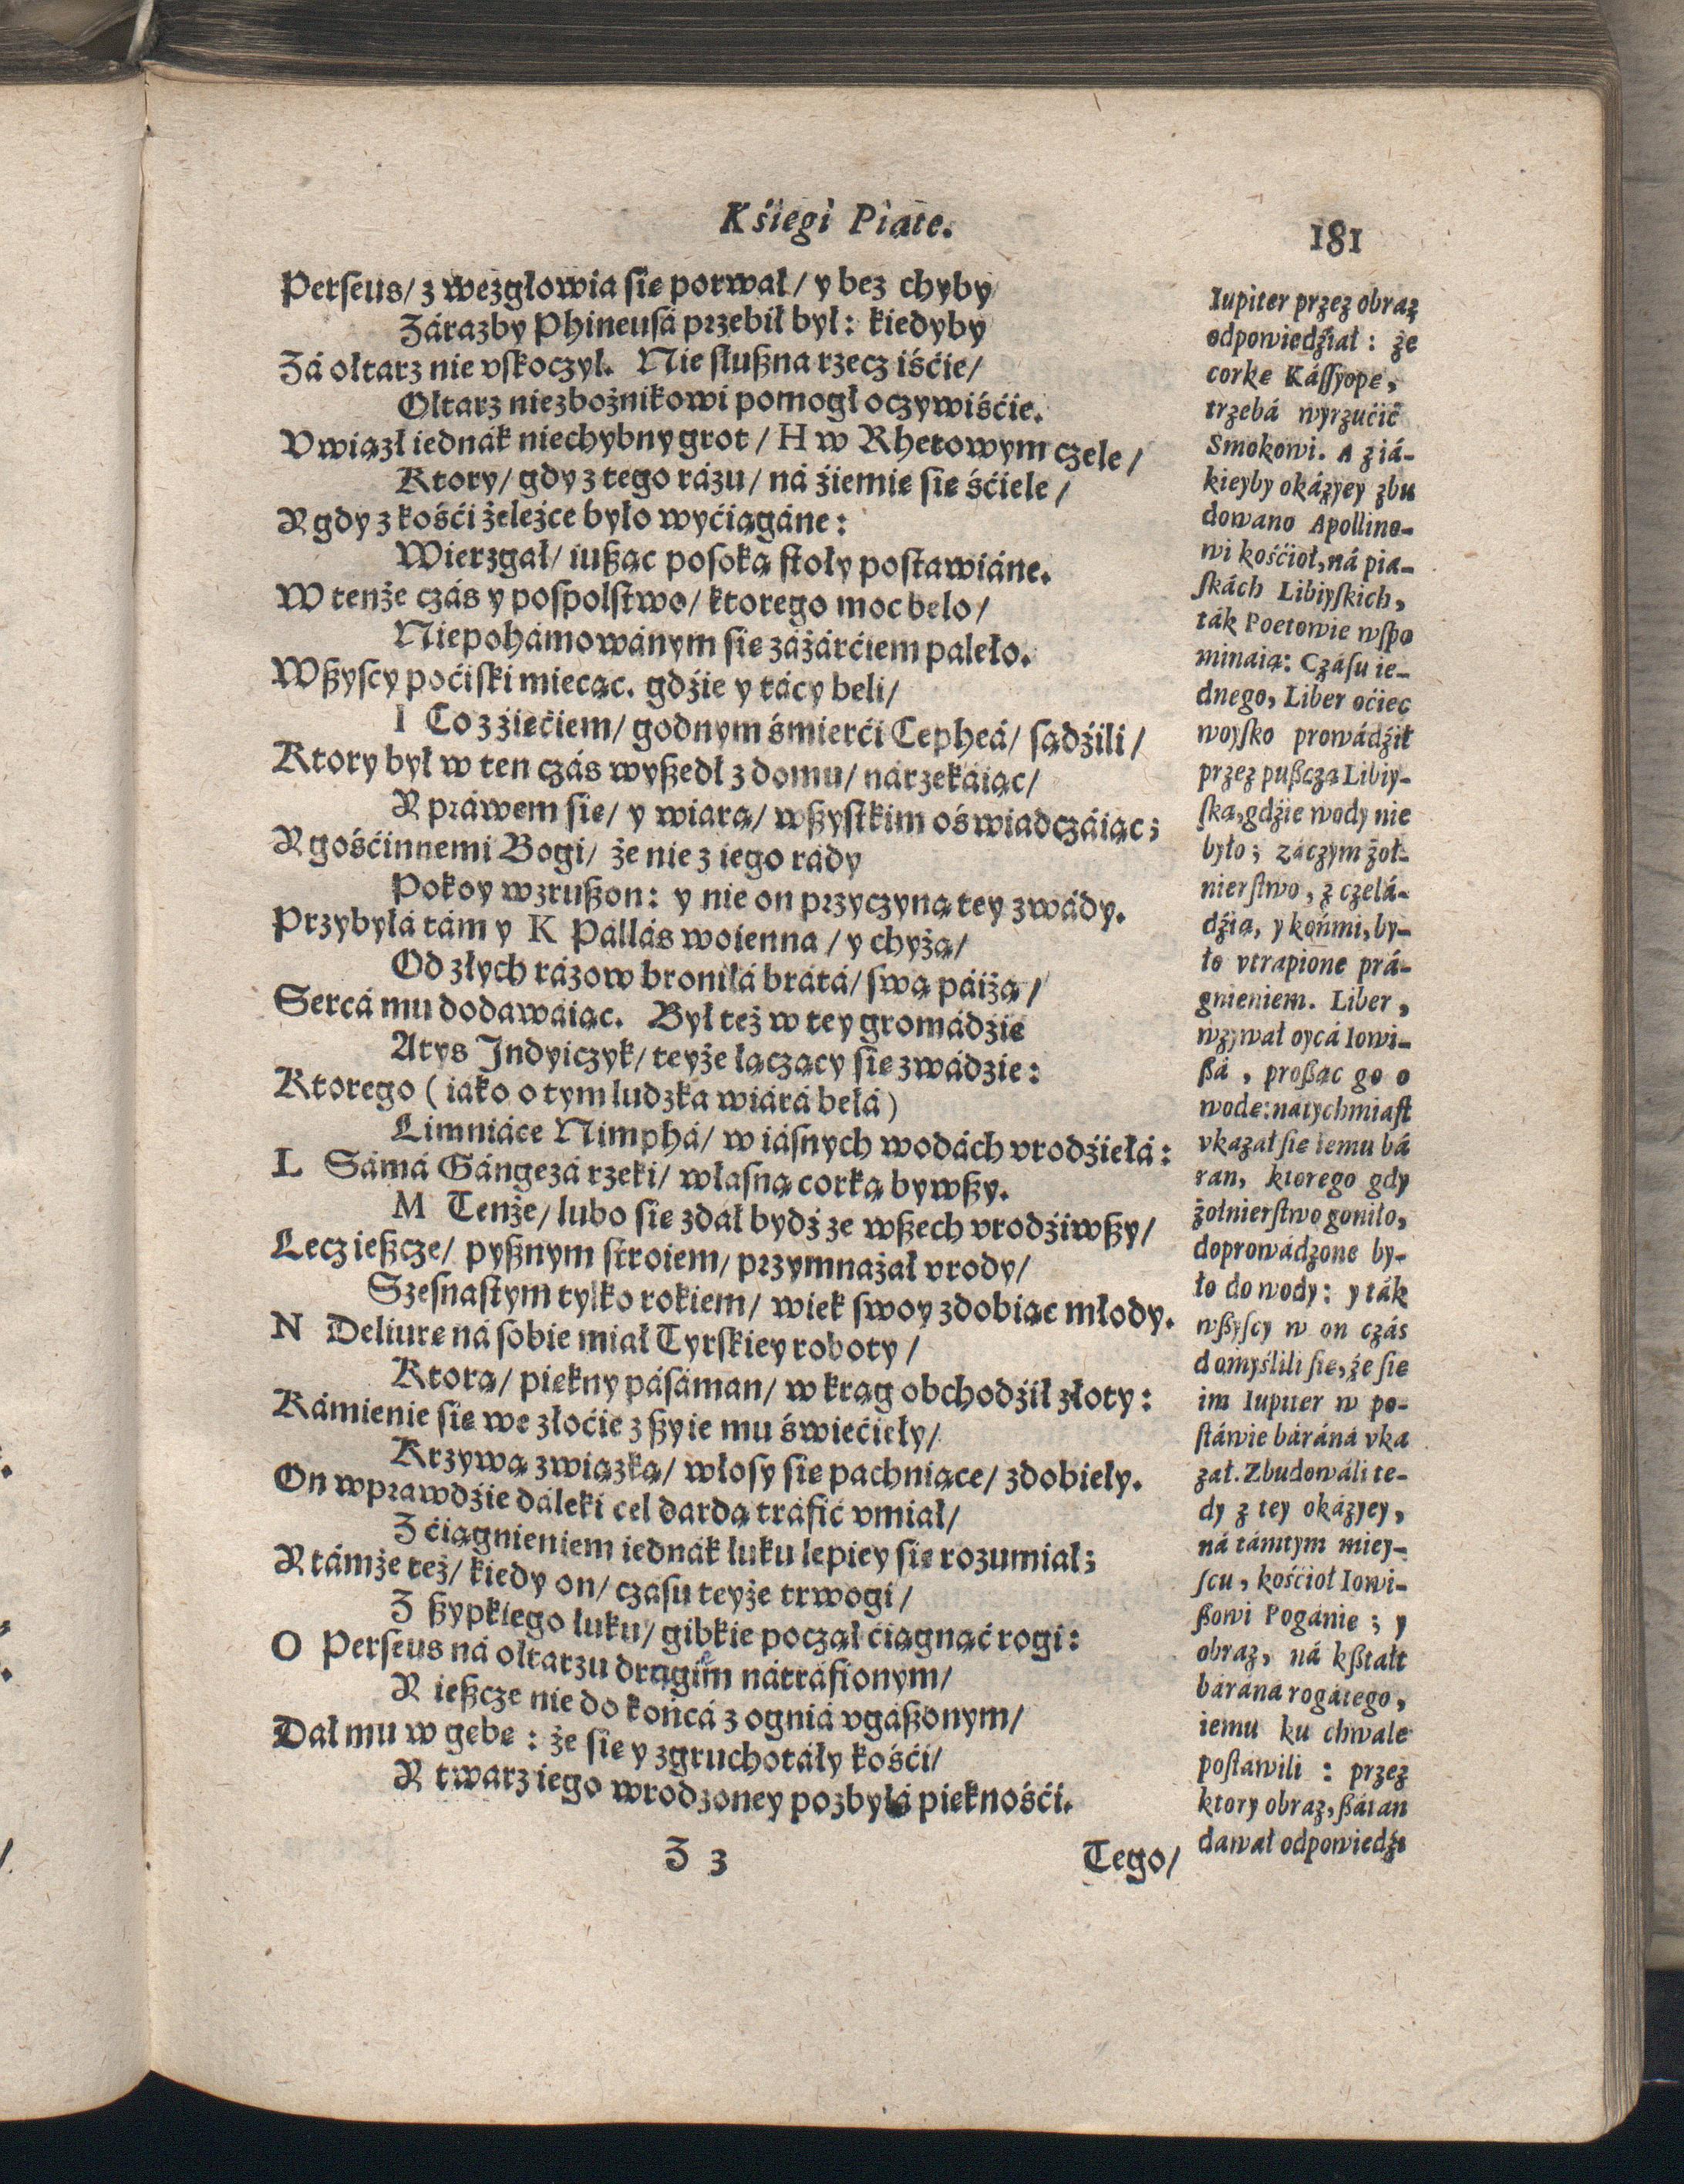 Kśięgi Piąte.
181
Perſeus/ z wezgłowia ſie porwał/ y bez chyby
Zárazby Phineuſá przebił był: kiedyby
Zá ołtarz nie vſkoczył. Nie ſłußna rzecz iśćie/
Ołtarz niezbożnikowi pomogł oczywiśćie.
Vwiązł iednák niechybny grot / H w Rhetowym czele/
Ktory/ gdy z tego rázu/ ná źiemię ſie śćiele/
A gdy z kośći żeleżce było wyćiągáne:
Wierzgał/ iußąc poſoką ſtoły poſtawiáne.
W tenże czás y poſpolſtwo/ ktorego moc beło/
Niepohámowánym ſie záżárćiem paleło.
Wßyſcy poćiſki miecąc. gdźie y tácy beli/
I Co z źięćiem/ godnym śmierći Cepheá/ ſądźili/
Ktory był w ten czás wyßedł z domu/ nárzekáiąc/
A práwem ſie/ y wiarą/ wßyſtkim oświadczáiąc;
A gośćinnemi Bogi/ że nie z iego rády
Pokoy wzrußon: y nie on przyczyną tey zwády.
Przybyłá tám y K Pállás woienna / y chyża/
Od złych rázow broniłá brátá/ ſwą páiżą/
Sercá mu dodawáiąc. Był też w tey gromádzie
Atys Indyiczyk/ teyże łączący ſie zwádzie:
Ktorego (iáko o tym ludzka wiárá bełá)
Limniáce Nimphá/ w iáſnych wodách vrodźiełá:
L Sámá Gángezá rzeki/ własną corką bywßy.
M Tenże/ lubo ſie zdał bydź ze wßech vrodźiwßy/
Lecz ießcze/ pyßnym ſtroiem/ przymnażał vrody/
Szeſnaſtym tylko rokiem/ wiek ſwoy zdobiąc młody.
N Deliurę ná ſobie miał Tyrſkiey roboty/
Ktorą/ piękny páſáman/ w krąg obchodźił złoty:
Kámienie ſie we złoćie z ßyie mu świećieły/
Krzywą związką/ włoſy ſie pachniące/ zdobieły.
On wprawdźie dáleki cel dardą tráfić vmiał/
Z ćiągnieniem iednák łuku lepiey ſie rozumiał;
A támże też/ kiedy on/ czaſu teyże trwogi/
Z ßypkiego łuku/ gibkie począł ćiągnąć rogi:
O Perſeus ná ołtarzu drągiem nátráfionym/
A ießcze nie do końcá z ogniá vgáßonym/
Dał mu w gębę: że ſie y zgruchotáły kośći/
A twarz iego wrodzoney pozbyłá pięknośći.
Z 3
Tego/
Iupiter przez obraz
odpowiedźiał: że
corkę Káſſyope,
trzebá wyrzućić
Smokowi. A z iá-
kieyby okázyey zbu
dowano Apollino-
wi kośćioł, ná pia-
ſkách Libiyſkich,
ták Poetowie wſpo
mináią: Czáſu ie-
dnego, Liber oćiec
woyſko prowádźił
przez pußczą Libiy-
ſką, gdźie wody nie
było; záczym żoł-
nierſtwo, z czelá-
dźią, y końmi, by-
ło vtrapione prá-
gnieniem. Liber,
wzywał oycá Iowi-
ßá, proßąc go o
wodę: nátychmiaſt
vkazał ſie iemu bá
ran, ktorego gdy
żołnierſtwo goniło,
doprowádzone by-
ło do wody: y ták
wßyſcy w on czás
domyślili ſie, że ſie
im Iupiter w po-
ſtáwie báráná vka
zał. Zbudowáli te-
dy z tey okázyey,
ná támtym miey-
ſcu, kośćioł Iowi-
ßowi Pogánie; y
obraz, ná kßtałt
báráná rogátego,
iemu ku chwale
poſtawili: przez
ktory obraz, ßátan
dawał odpowiedźi